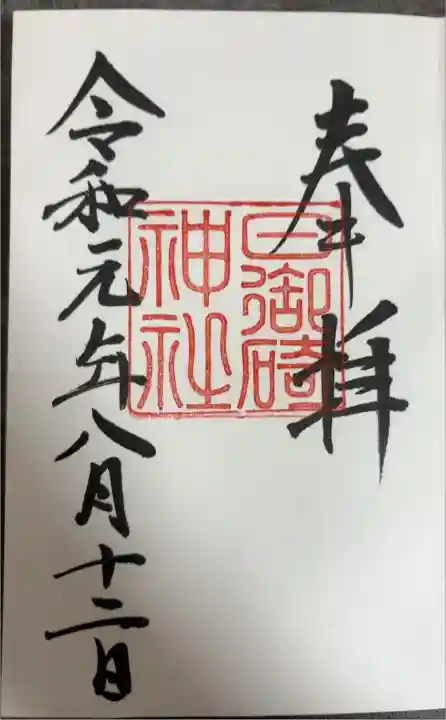 奉拝
日御碕
神社
令和元年八月十二日